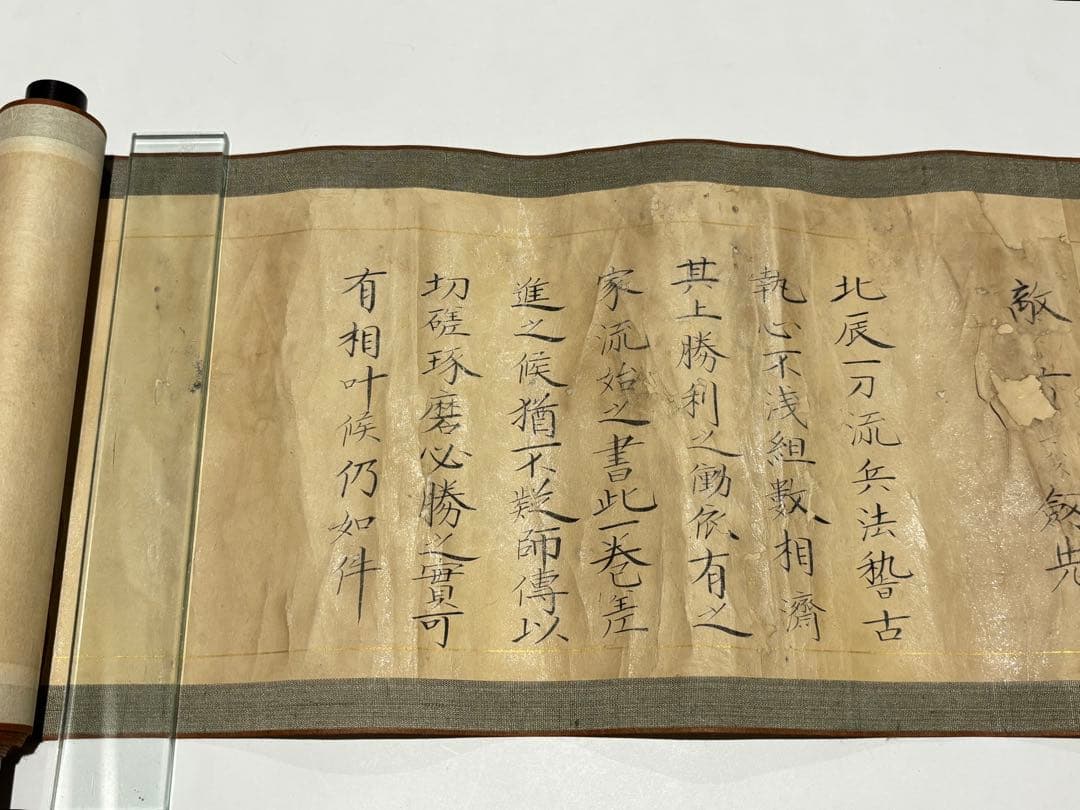 敵
剱先
北辰一刀流兵法稽古
執心不浅組数相済
其上勝利之働依有之
家流始之書此一巻差
進之候猶不疑師傳以
切磋琢磨必勝之實可
有相叶候仍如件